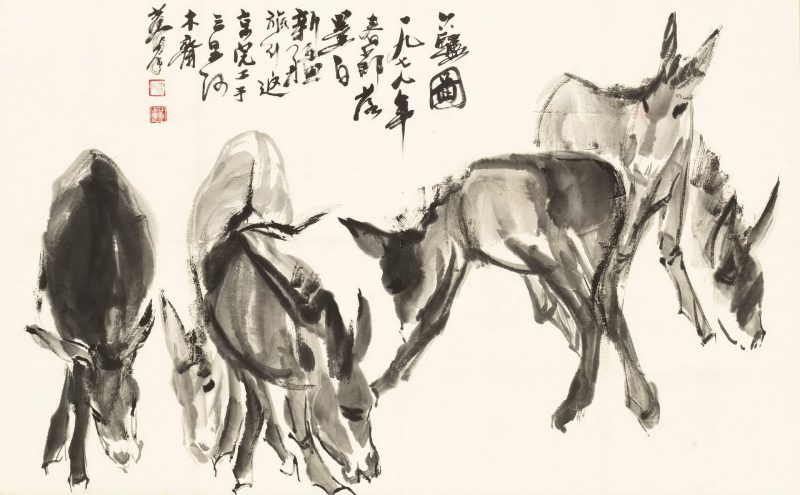 六驢圖
一九七九年
春節落
墨自
新疆
旅行返
京完工于
三里河
木齋
黄胄